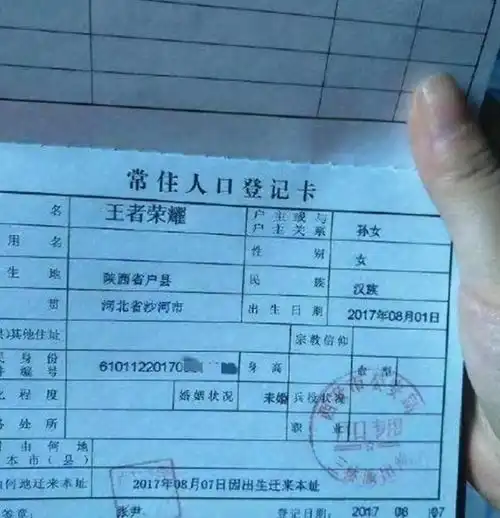 常住人口登记卡
名 王者荣耀 户主或与户主关系 孙女
用名 性别 女
生地 陕西省户县 民族 汉族
贯 河北省沙河市 出生日期 2017年08月01日
其他住址 宗教信仰
身份编号 6101122017 身高 血型
程度 婚姻状况 未婚 兵役状况
处所 职业
由何地
本市(县)
何地迁来本址 2017年08月07日因出生迁来本址
签章: 张尹 登记日期: 2017 08 07